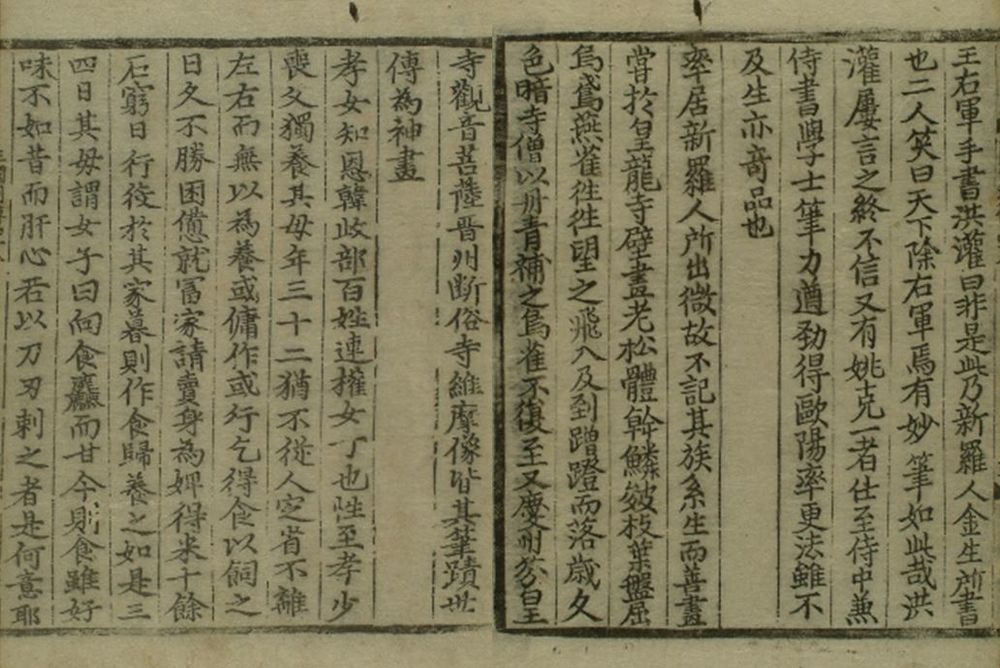 王右軍手書洪灌曰非是此乃新羅人金生所書
也二人笑曰天下除右軍焉有妙筆如此哉洪
灌屢言之終不信又有姚克一者仕至侍中兼
侍書學士筆力遒勁得歐陽率更法雖不
及生亦奇品也
率居新羅人所出微故不記其族系生而善畫
嘗於皇龍寺壁畫老松體幹鱗皴枝葉盤屈
烏鳶燕雀徃徃望之飛入及到蹭蹬而落歲久
色暗寺僧以丹青補之烏雀不復至又慶州芬皇
寺觀音菩薩晋州斷俗寺維摩像皆其筆蹟世
傳為神畫
孝女知恩韓歧部百姓連權女子也性至孝少
喪父獨養其母年三十二猶不從人定省不離
左右而無以為養或傭作或行乞得食以飼之
日久不勝困憊就冨家請賣身為婢得米十餘
石窮日行役於其家暮則作食歸養之如是三
四日其母謂女子曰向食麤而甘今則食雖好
味不如昔而肝心若以刀刃刺之者是何意耶